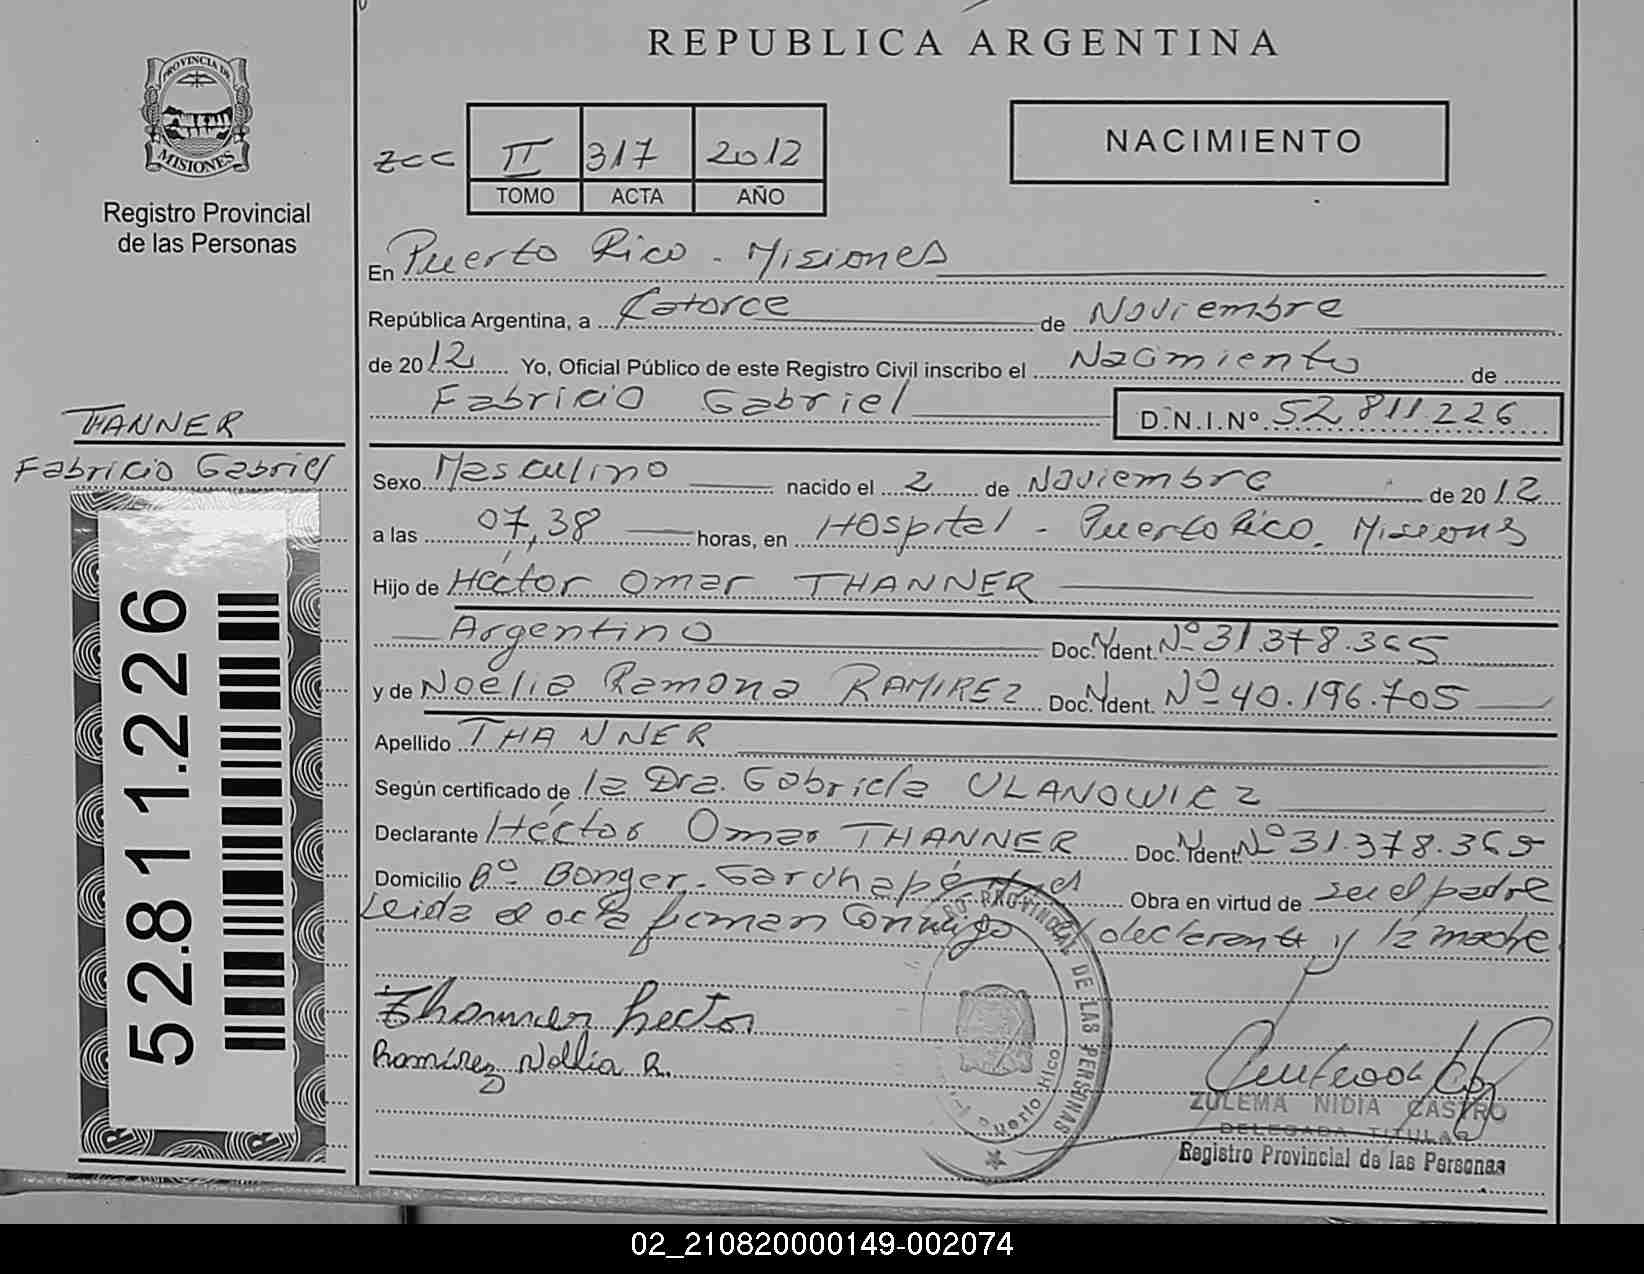 REPUBLICA ARGENTINA
PROVINCIA DE
MISIONES
Registro Provincial
de las Personas
zcc II 317 2012
TOMO ACTA AÑO
NACIMIENTO
En Puerto Rico - Misiones
República Argentina, a Catorce de Noviembre
de 2012 Yo, Oficial Público de este Registro Civil inscribo el Nacimiento de
Fabricio Gabriel D.N.I.Nº 52.811.226
THANNER
Fabricio Gabriel
Sexo Masculino nacido el 2 de Noviembre de 2012
a las 07,38 horas, en Hospital - Puerto Rico, Misiones
Hijo de Héctor Omar THANNER
Argentino Doc. Ident. Nº 31.378.365
y de Noelia Ramona RAMIREZ Doc. Ident. Nº 40.196.705
Apellido THANNER
Según certificado de la Dra. Gabriela ULANOWICZ
Declarante Héctor Omar THANNER Doc. Ident. Nº 31.378.365
Domicilio Bº Bonger - Garuhapé Mnes Obra en virtud de ser el padre
Leida el acta firman conmigo declarante y la madre
52.811.226
Thanner hector
Ramirez Noelia R.
PROVINCIAL DE LAS PERSONAS
Puerto Rico
ZULEMA NIDIA CASTRO
DELEGADA TITULAR
Registro Provincial de las Personas
02_210820000149-002074